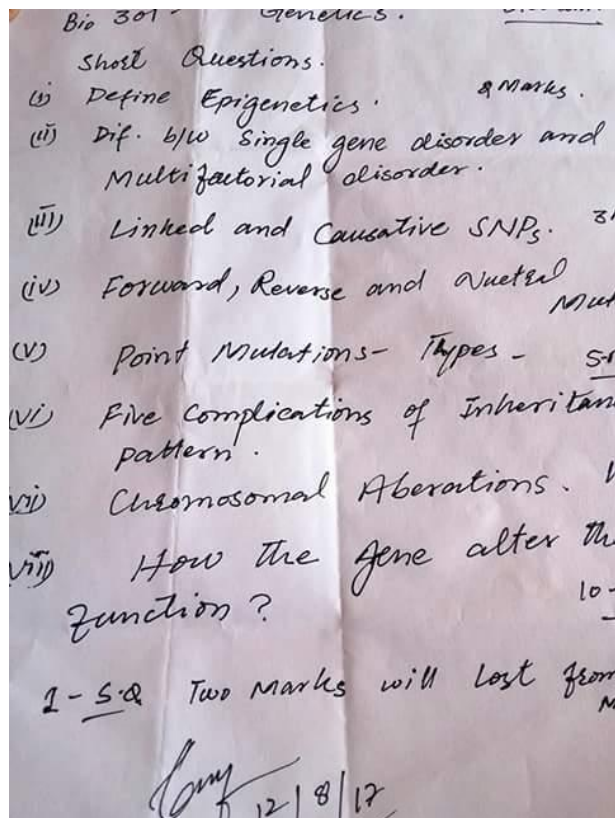 Bio 301 - Genetics.
Short Questions.
(i) Define Epigenetics. 2 Marks.
(ii) Dif. b/w Single gene disorder and
Multifactorial disorder.
(iii) Linked and Causative SNPs. 3
(iv) Forward, Reverse and Nuetral
Mut
(v) Point Mutations - Types -
(vi) Five Complications of Inheritan
pattern.
(vii) Chromosomal Aberations.
(viii) How the gene alter the
function?
10 -
1 - S.Q Two Marks will Lost from
12/8/17